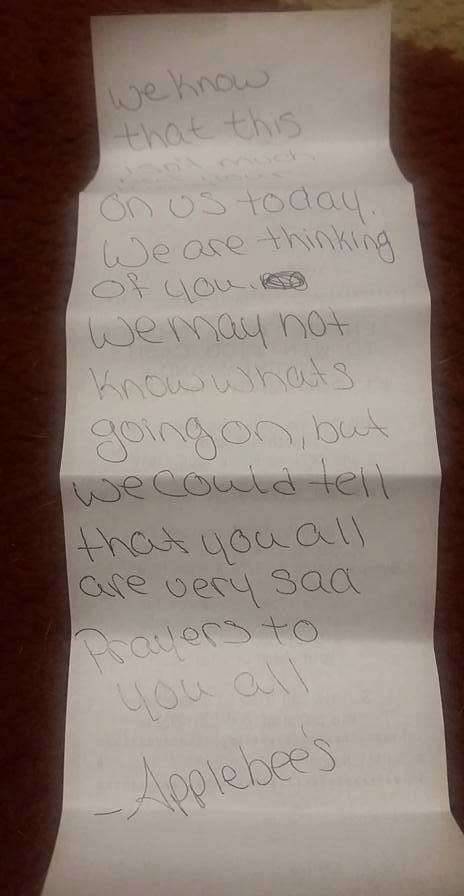 we know
that this
isn't much
on us today.
We are thinking
of you.
We may not
know whats
going on, but
we could tell
that you all
are very sad
Prayers to
you all
- Applebee's